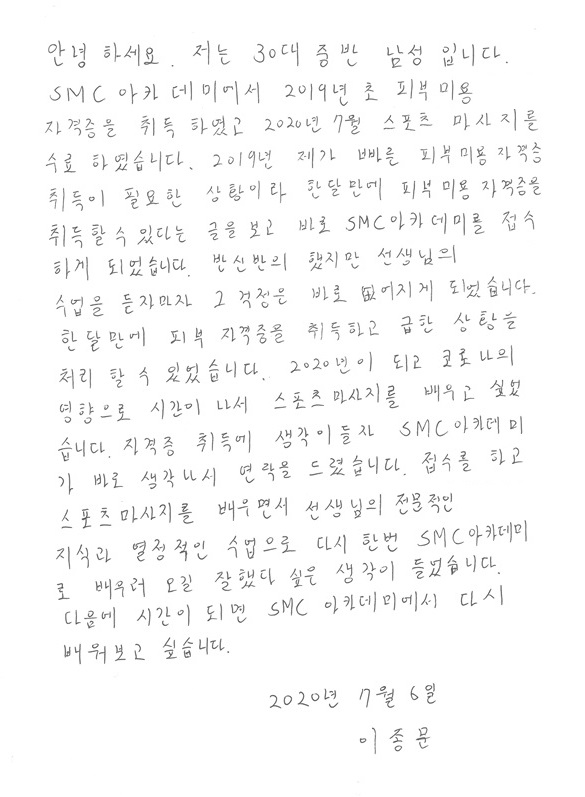 안녕 하세요. 저는 30대 중반 남성 입니다.
SMC 아카데미에서 2019년 초 피부미용
자격증을 취득 하였고 2020년 7월 스포츠 마사지를
수료 하였습니다. 2019년 제가 빠른 피부미용자격증
취득이 필요한 상황이라 한달만에 피부미용자격증을
취득할 수 있다는 글을 보고 바로 SMC아카데미를 접수
하게 되었습니다. 반신반의 했지만 선생님의
수업을 듣자마자 그 걱정은 바로 없어지게 되었습니다.
한달만에 피부 자격증을 취득하고 급한 상황을
처리 할 수 있었습니다. 2020년이 되고 코로나의
영향으로 시간이 나서 스포츠마사지를 배우고 싶었
습니다. 자격증 취득에 생각이들자 SMC아카데미
가 바로 생각나서 연락을 드렸습니다. 접수를 하고
스포츠마사지를 배우면서 선생님의 전문적인
지식과 열정적인 수업으로 다시 한번 SMC아카데미
로 배우러 오길 잘했다 싶은 생각이 들었습니다.
다음에 시간이 되면 SMC 아카데미에서 다시
배워보고 싶습니다.
2020년 7월 6일
이종문